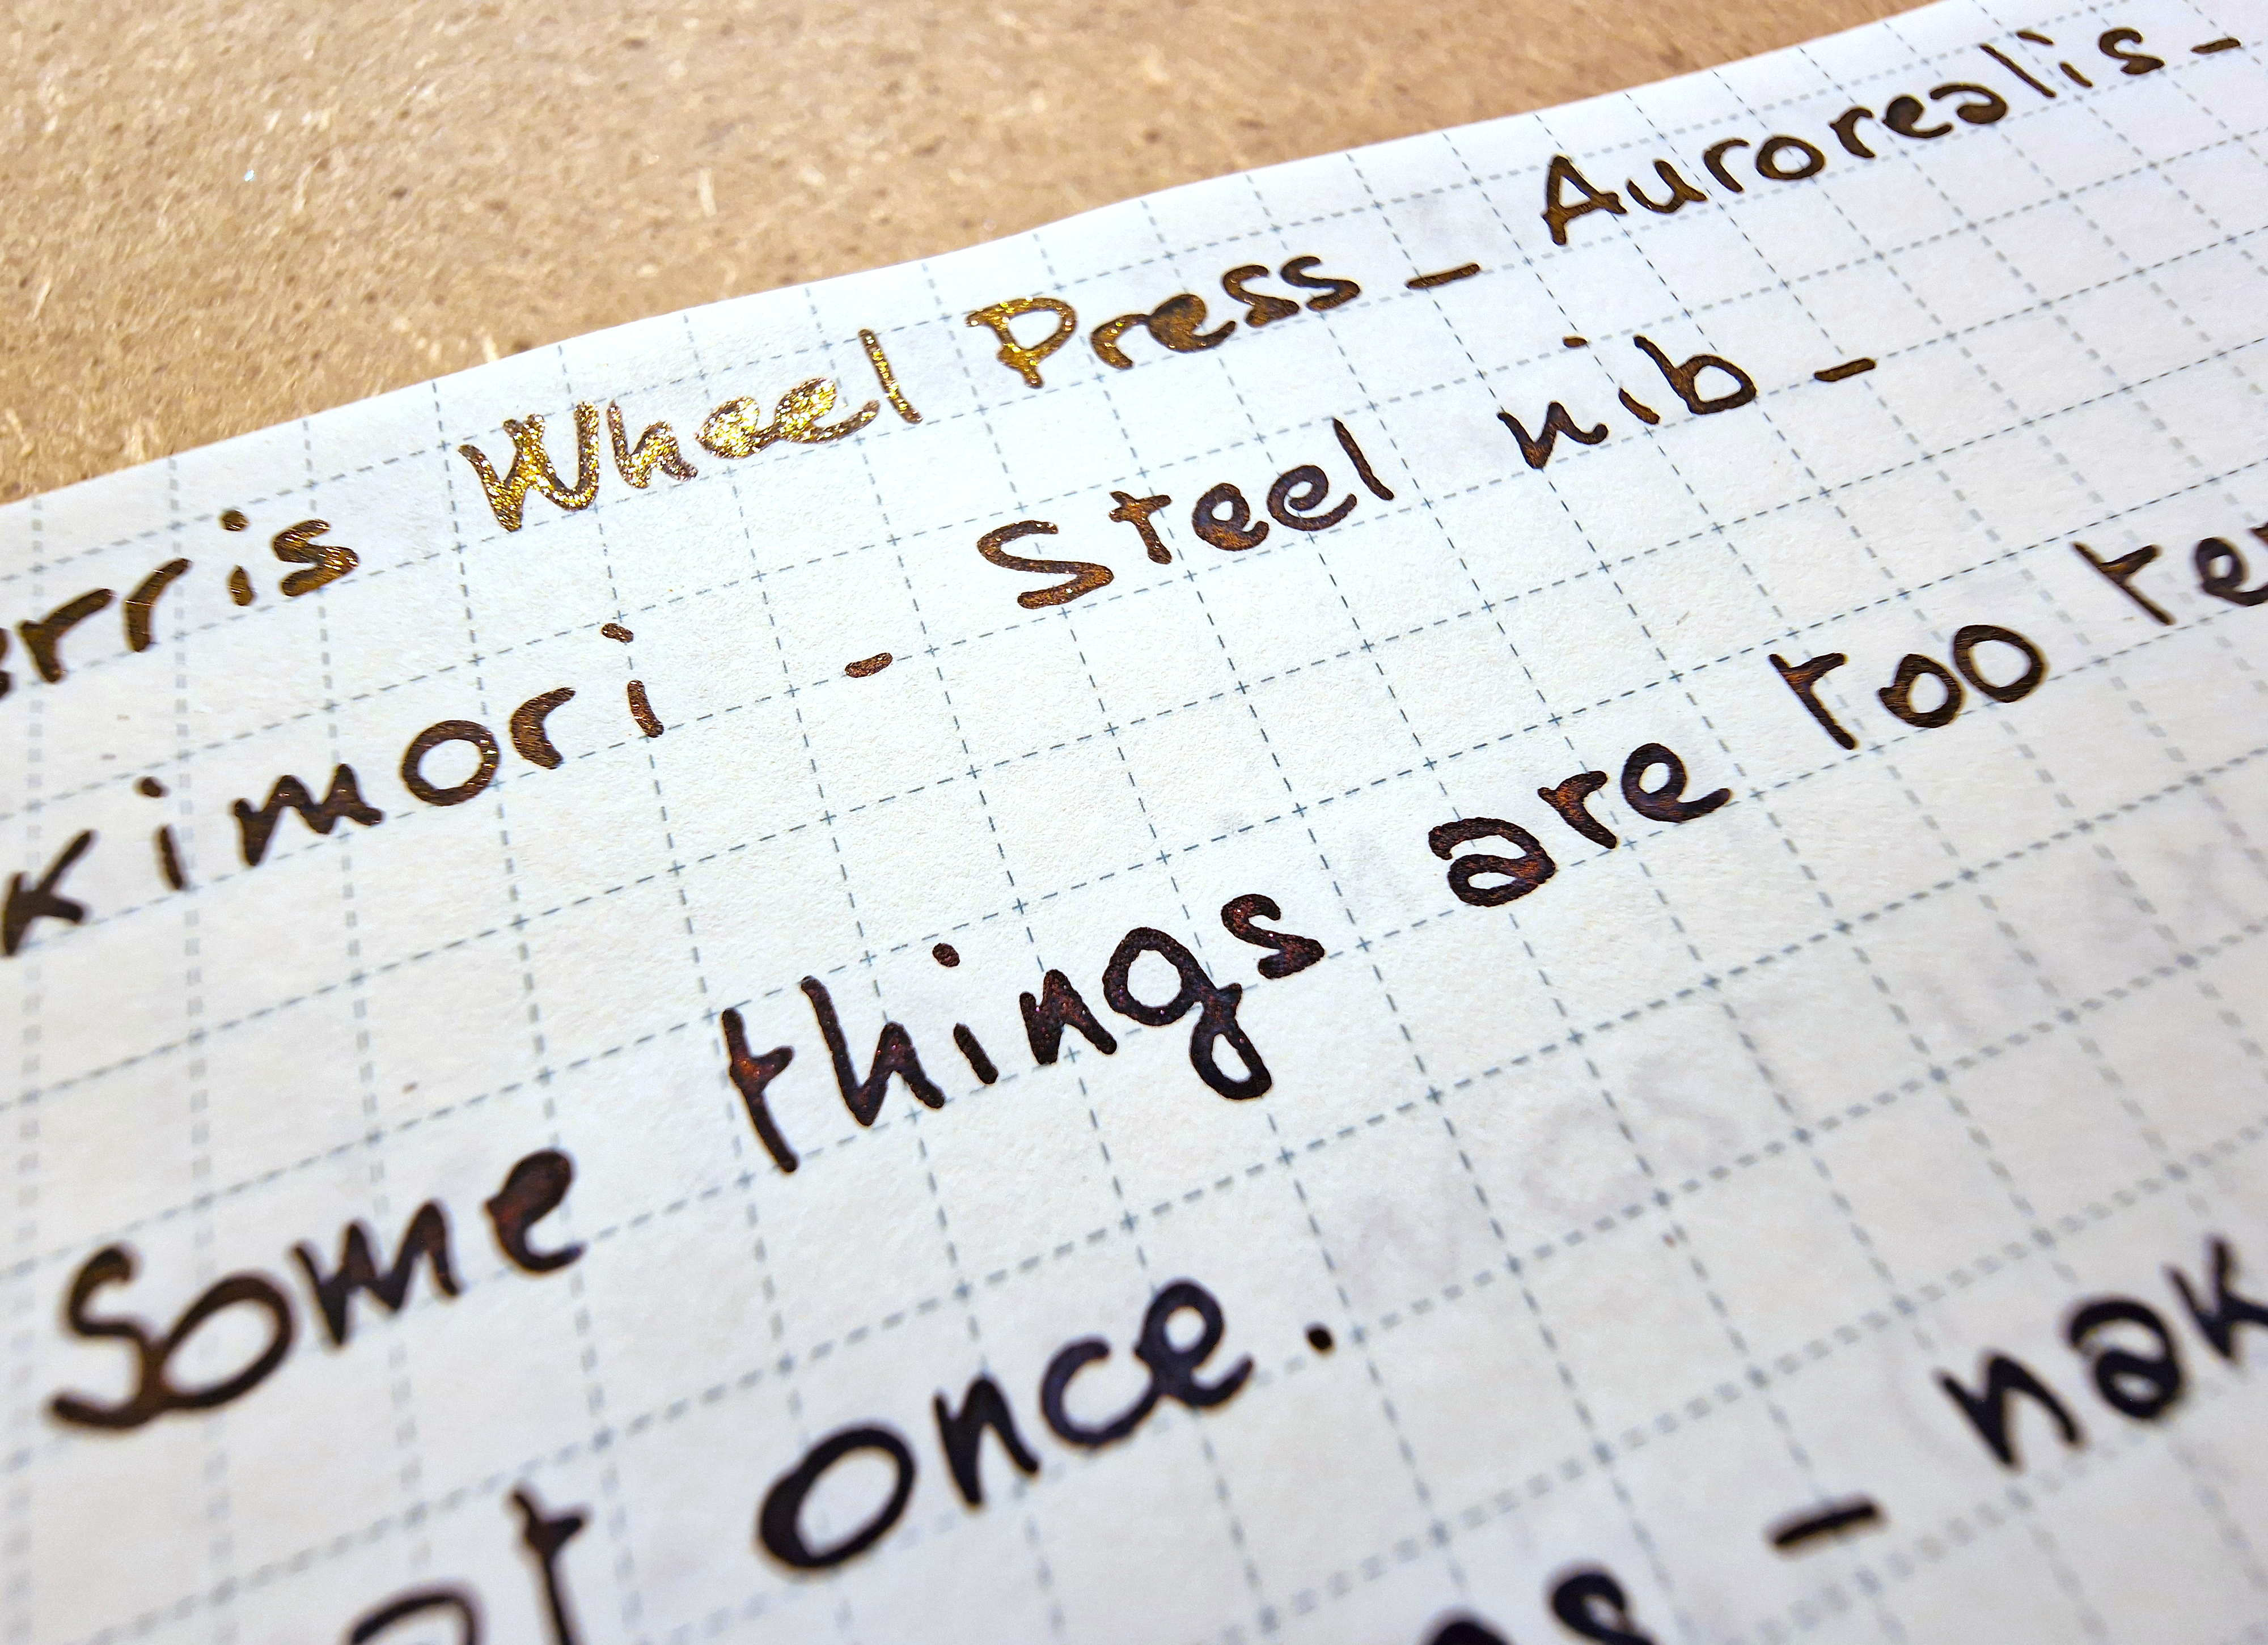 erris Wheel Press - Aurorealis -
kimori - Steel nib -
Some things are too te
at once.
- nak